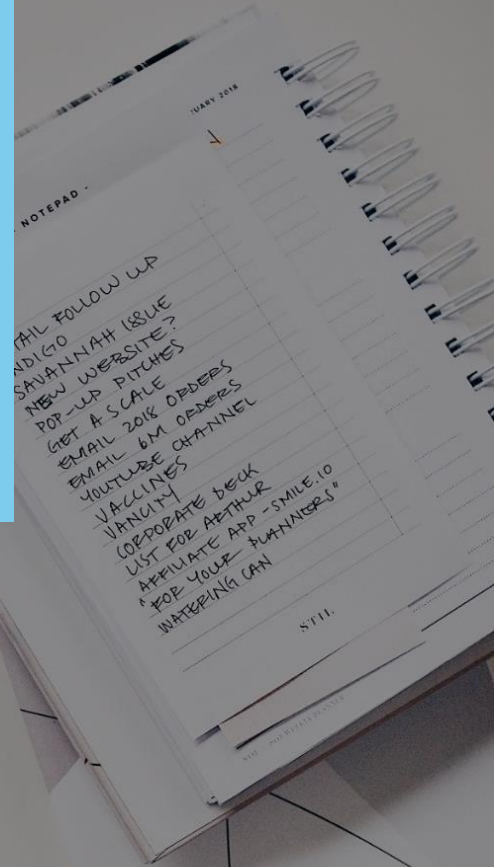 UARY 2018
NOTEPAD .
TAIL FOLLOW UP
NDIGO
SAVANNAH ISSUE
NEW WEBSITE?
POP-UP PITCHES
GET A SCALE
EMAIL 2018 ORDERS
EMAIL 6M ORDERS
YOUTUBE CHANNEL
VACCINES
VANCITY
CORPORATE DECK
LIST FOR ARTHUR
AFFILIATE APP - SMILE.IO
"FOR YOUR PLANNERS"
WATERING CAN
STIL
WEEKLY PLANNER